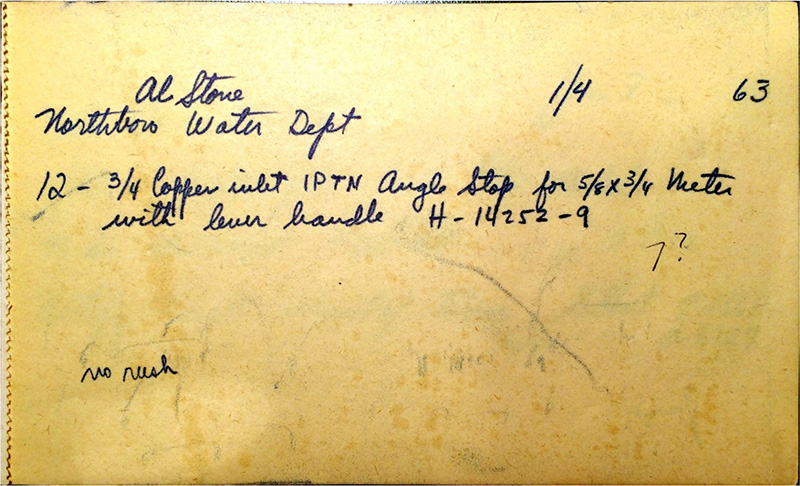 Al Stone 1/4 63
Northboro Water Dept
12 - 3/4 Copper inlet IPTN Angle Stop for 5/8 X 3/4 Meter
with lever handle H-14252-9
7?
no rush